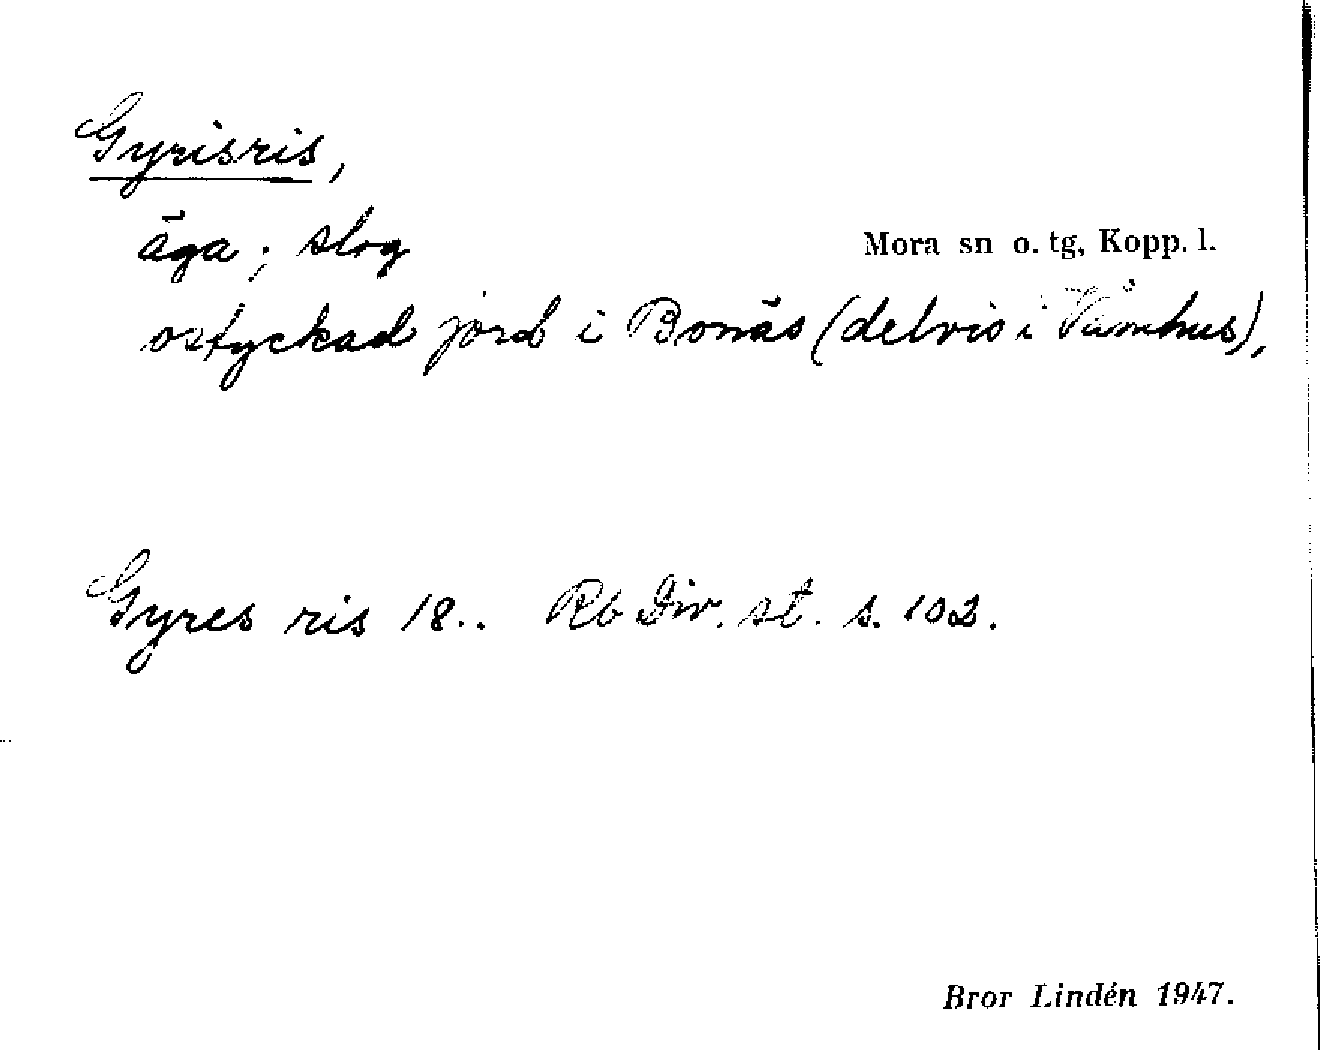 Gyrisris,
äga; slog
Mora sn o. tg, Kopp. l.
ostyckad jord i Bonäs (delvis i Våmhus),
Gyres ris 18.. Rb Div. st. s. 102.
Bror Lindén 1947.